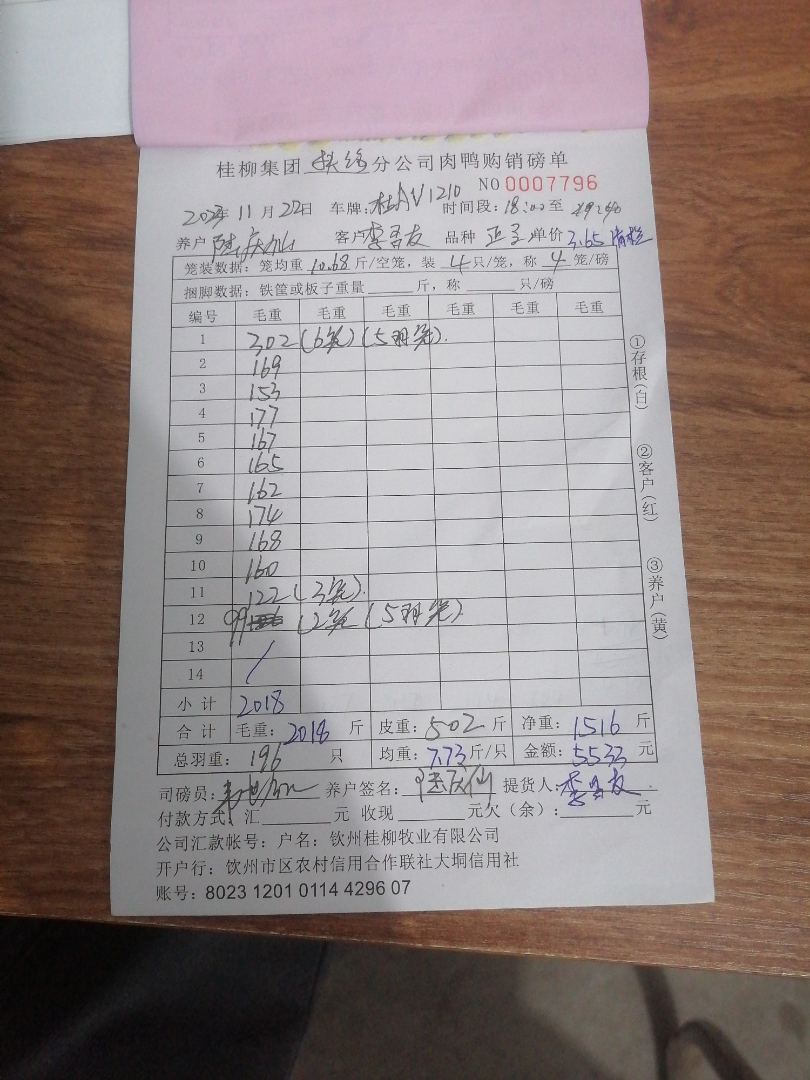 桂柳集团 分公司肉鸭购销磅单
NO 0007796
2023年 11月 22日 车牌:桂AV1210 时间段:18:00至
养户 陆庆仙 客户 李 友 品种 单价 3.65
笼装数据:笼均重 10.68 斤/空笼,装 4 只/笼,称 4 笼/磅
捆脚数据:铁筐或板子重量 斤,称 只/磅
编号 毛重 毛重 毛重 毛重 毛重 毛重
1 302(6笼)(5羽笼).
2 169
3 153
4 177
5 167
6 165
7 162
8 174
9 168
10 160
11 122(3笼).
12 99 (2笼(5羽笼).
13 /
14
小计 2018
合计 毛重:2018 斤 皮重:502 斤 净重:1516 斤
总羽重: 196 只 均重:7.73斤/只 金额:5533 元
司磅员: 养户签名:陆庆仙 提货人:李 友
付款方式:汇 元 收现 元欠(余): 元
公司汇款帐号:户名:钦州桂柳牧业有限公司
开户行:钦州市区农村信用合作联社大垌信用社
账号:8023 1201 0114 4296 07
①存根(白)
②客户(红)
③养户(黄)